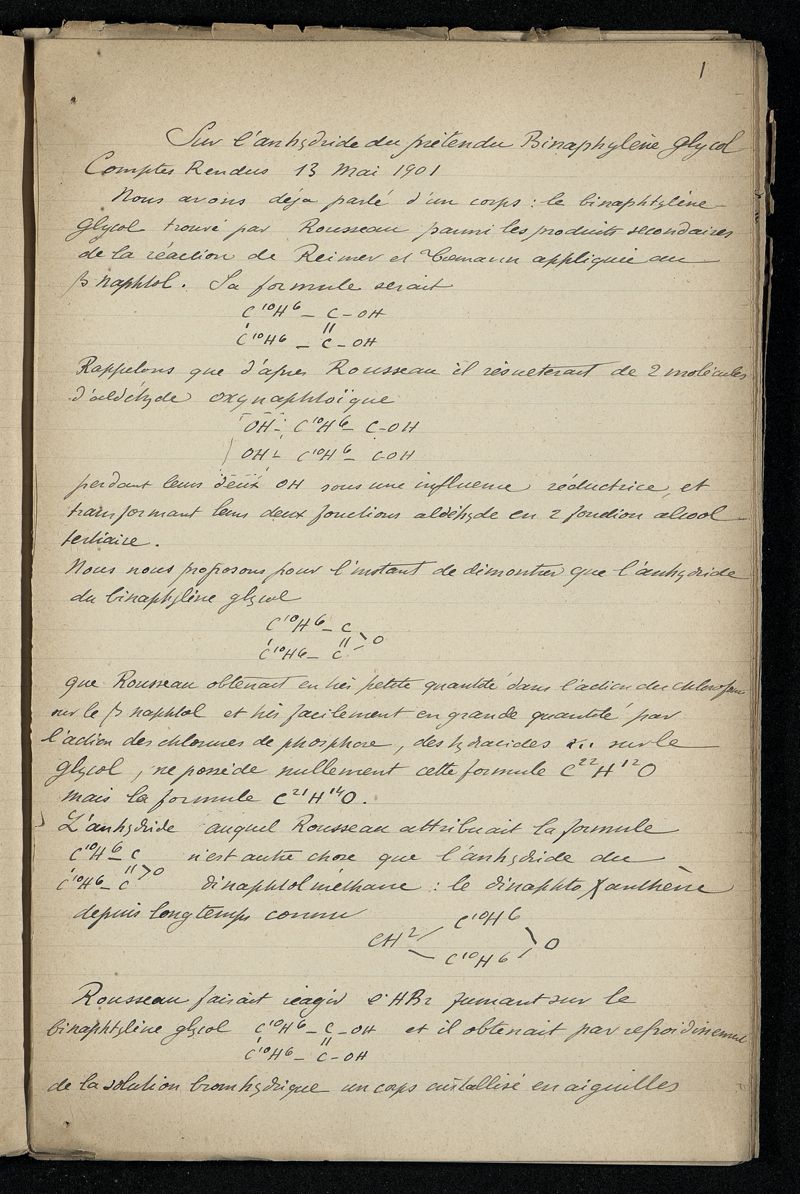 1
Sur l'anhydride du prétendu Binaphylène glycol
Comptes Rendus 13 Mai 1901
Nous avons déja parlé d'un corps : le binaphtylène
glycol trouvé par Rousseau parmi les produits secondaires
de la réaction de Reimer et Tiemann appliquée au
β naphtol. Sa formule serait
C¹⁰H⁶ – C – OH
C¹⁰H⁶ – C – OH
Rappelons que d'après Rousseau il résulterait de 2 molécules
d'aldéhyde oxynaphtoïque
OH – C¹⁰H⁶ – C–OH
OH – C¹⁰H⁶ – COH
perdant leurs deux OH sous une influence réductrice, et
transformant leurs deux fonctions aldéhyde en 2 fonction alcool
tertiaire.
Nous nous proposons pour l'instant de démontrer que l'anhydride
du binaphylène glycol
C¹⁰H⁶ – C
C¹⁰H⁶ – C > O
que Rousseau obtenait en très petite quantité dans l'action du chloroforme
sur le β naphtol et très facilement en grande quantité par
l'action des chlorures de phosphore, des hydracides ... sur le
glycol, ne possède nullement cette formule C²²H¹²O
mais la formule C²¹H¹⁴O.
L'anhydride auquel Rousseau attribuait la formule
C¹⁰H⁶ – C n'est autre chose que l'anhydride du
C¹⁰H⁶ – C > O dinaphtolméthane : le dinaphto Xanthène
depuis longtemps connu
CH² / C¹⁰H⁶
C¹⁰H⁶ > O
Rousseau faisait réagir l'HBr fumant sur le
binaphtylène glycol C¹⁰H⁶ – C – OH et il obtenait par refroidissement
C¹⁰H⁶ – C – OH
de la solution bromhydrique un corps cristallisé en aiguilles